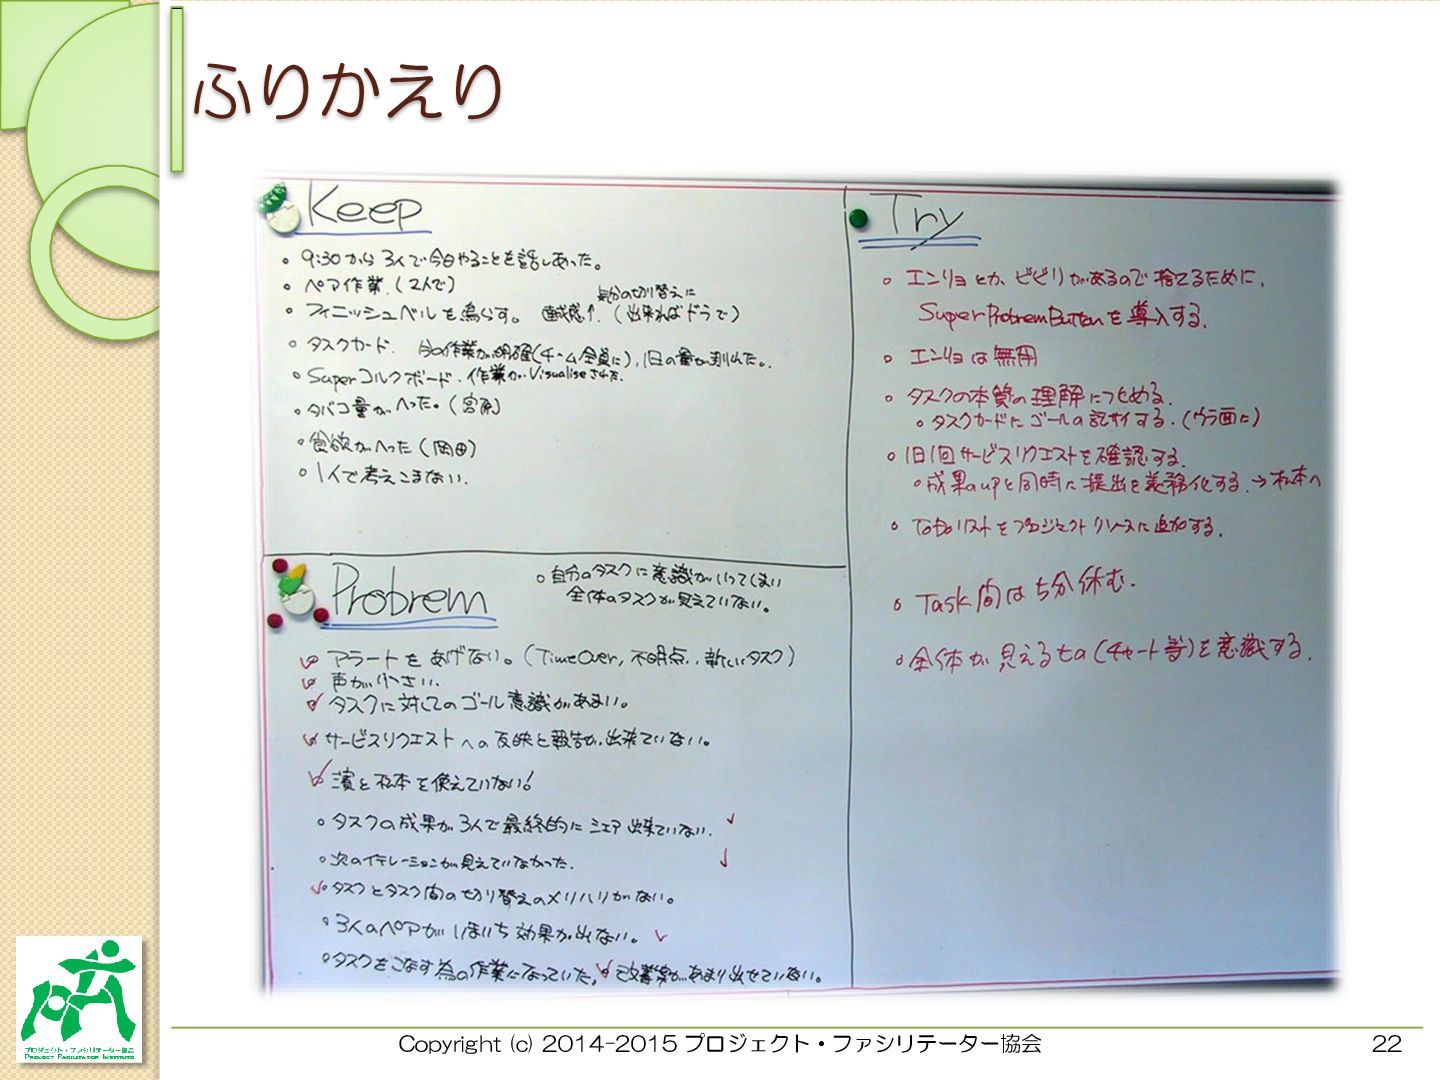 ふりかえり
Keep
。9:30から3人で今日やることを話しあった。
。ペア作業.(2人で)
気分の切り替えに
。フィニッシュベルを鳴らす。 達成感↑.(出来ればドラで)
。タスクカード. 今の作業が明確(チーム全員に),1日の量が判った。
。Superコルクボード.作業がVisualiseされた.
。タバコ量がへった。(宮原)
。食欲がへった(岡田)
。1人で考えこまない.
Probrem
。自分のタスクに意識がいってしまい
全体のタスクが見えていない。
。アラートをあげない。(TimeOver,不明点,新しいタスク)
。声が小さい.
。タスクに対してのゴール意識があまい。
。サービスリクエストへの反映と報告が出来ていない。
。濱と松本を使えていない!
。タスクの成果が3人で最終的にシェア出来ていない.
。次のイテレーションが見えていなかった.
。タスクとタスク間の切り替えのメリハリがない。
。3人のペアがいまいち効果が出ない。
。タスクをこなす為の作業になっていた。 。改善案があまり出せていない。
Try
。エンリョとか、ビビリがあるので捨てるために,
SuperProbremButtonを導入する.
。エンリョは無用
。タスクの本質の理解につとめる.
。タスクカードにゴールの記サイする.(ウラ面に)
。1日1回サービスリクエストを確認する.
。成果のupと同時に提出を義務化する.→松本へ
。ToDoリストをプロジェクトリソースに追加する.
。Task間は5分休む.
。全体が見えるもの(チャート等)を意識する.
プロジェクト・ファシリテーター協会
PROJECT FACILITATOR INSTITUTE
Copyright (c) 2014-2015 プロジェクト・ファシリテーター協会
22